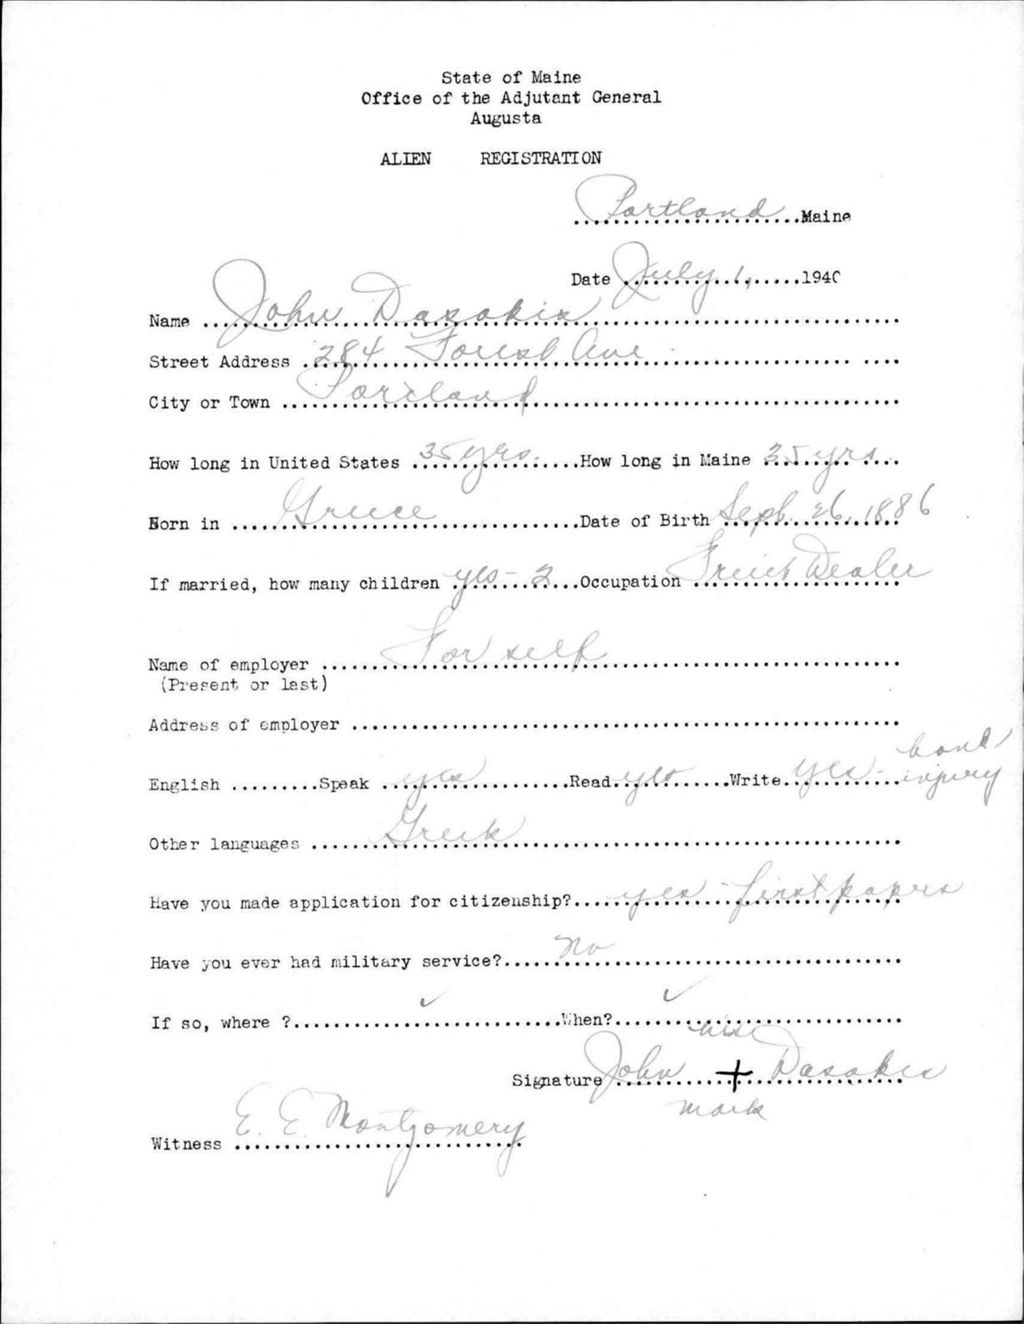 State of Maine
Office of the Adjutant General
Augusta
ALIEN REGISTRATION
Portland Maine
Date July 1, 1940
Name John Dasakis
Street Address 284 Forest Ave
City or Town Portland
How long in United States 35 yrs. How long in Maine 35 yrs.
Born in Greece Date of Birth Sept. 26, 1886
If married, how many children yes - 2 Occupation Fruit Dealer
Name of employer For self
(Present or last)
Address of employer
English Speak yes Read yes Write yes - hand injury
Other languages Greek
Have you made application for citizenship? yes - first papers
Have you ever had military service? No
If so, where ? ✓ When? ✓
his
Signature John + Dasakis
mark
Witness E. E. Montgomery